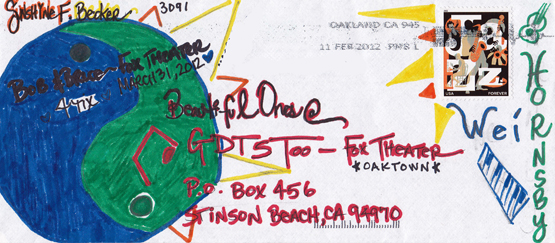 SUNSHINE F. Becker
3091
OAKLAND CA 945
11 FEB 2012 PM 5 L
JAZZ
USA FOREVER
Bob & Bruce ~ Fox Theater
MARCH 31, 2012
4 TIX
Beautiful Ones @
GDTSToo - Fox Theater
*OAKTOWN*
P.O. BOX 456
STINSON BEACH, CA 94970
Wei
& HORNSBY